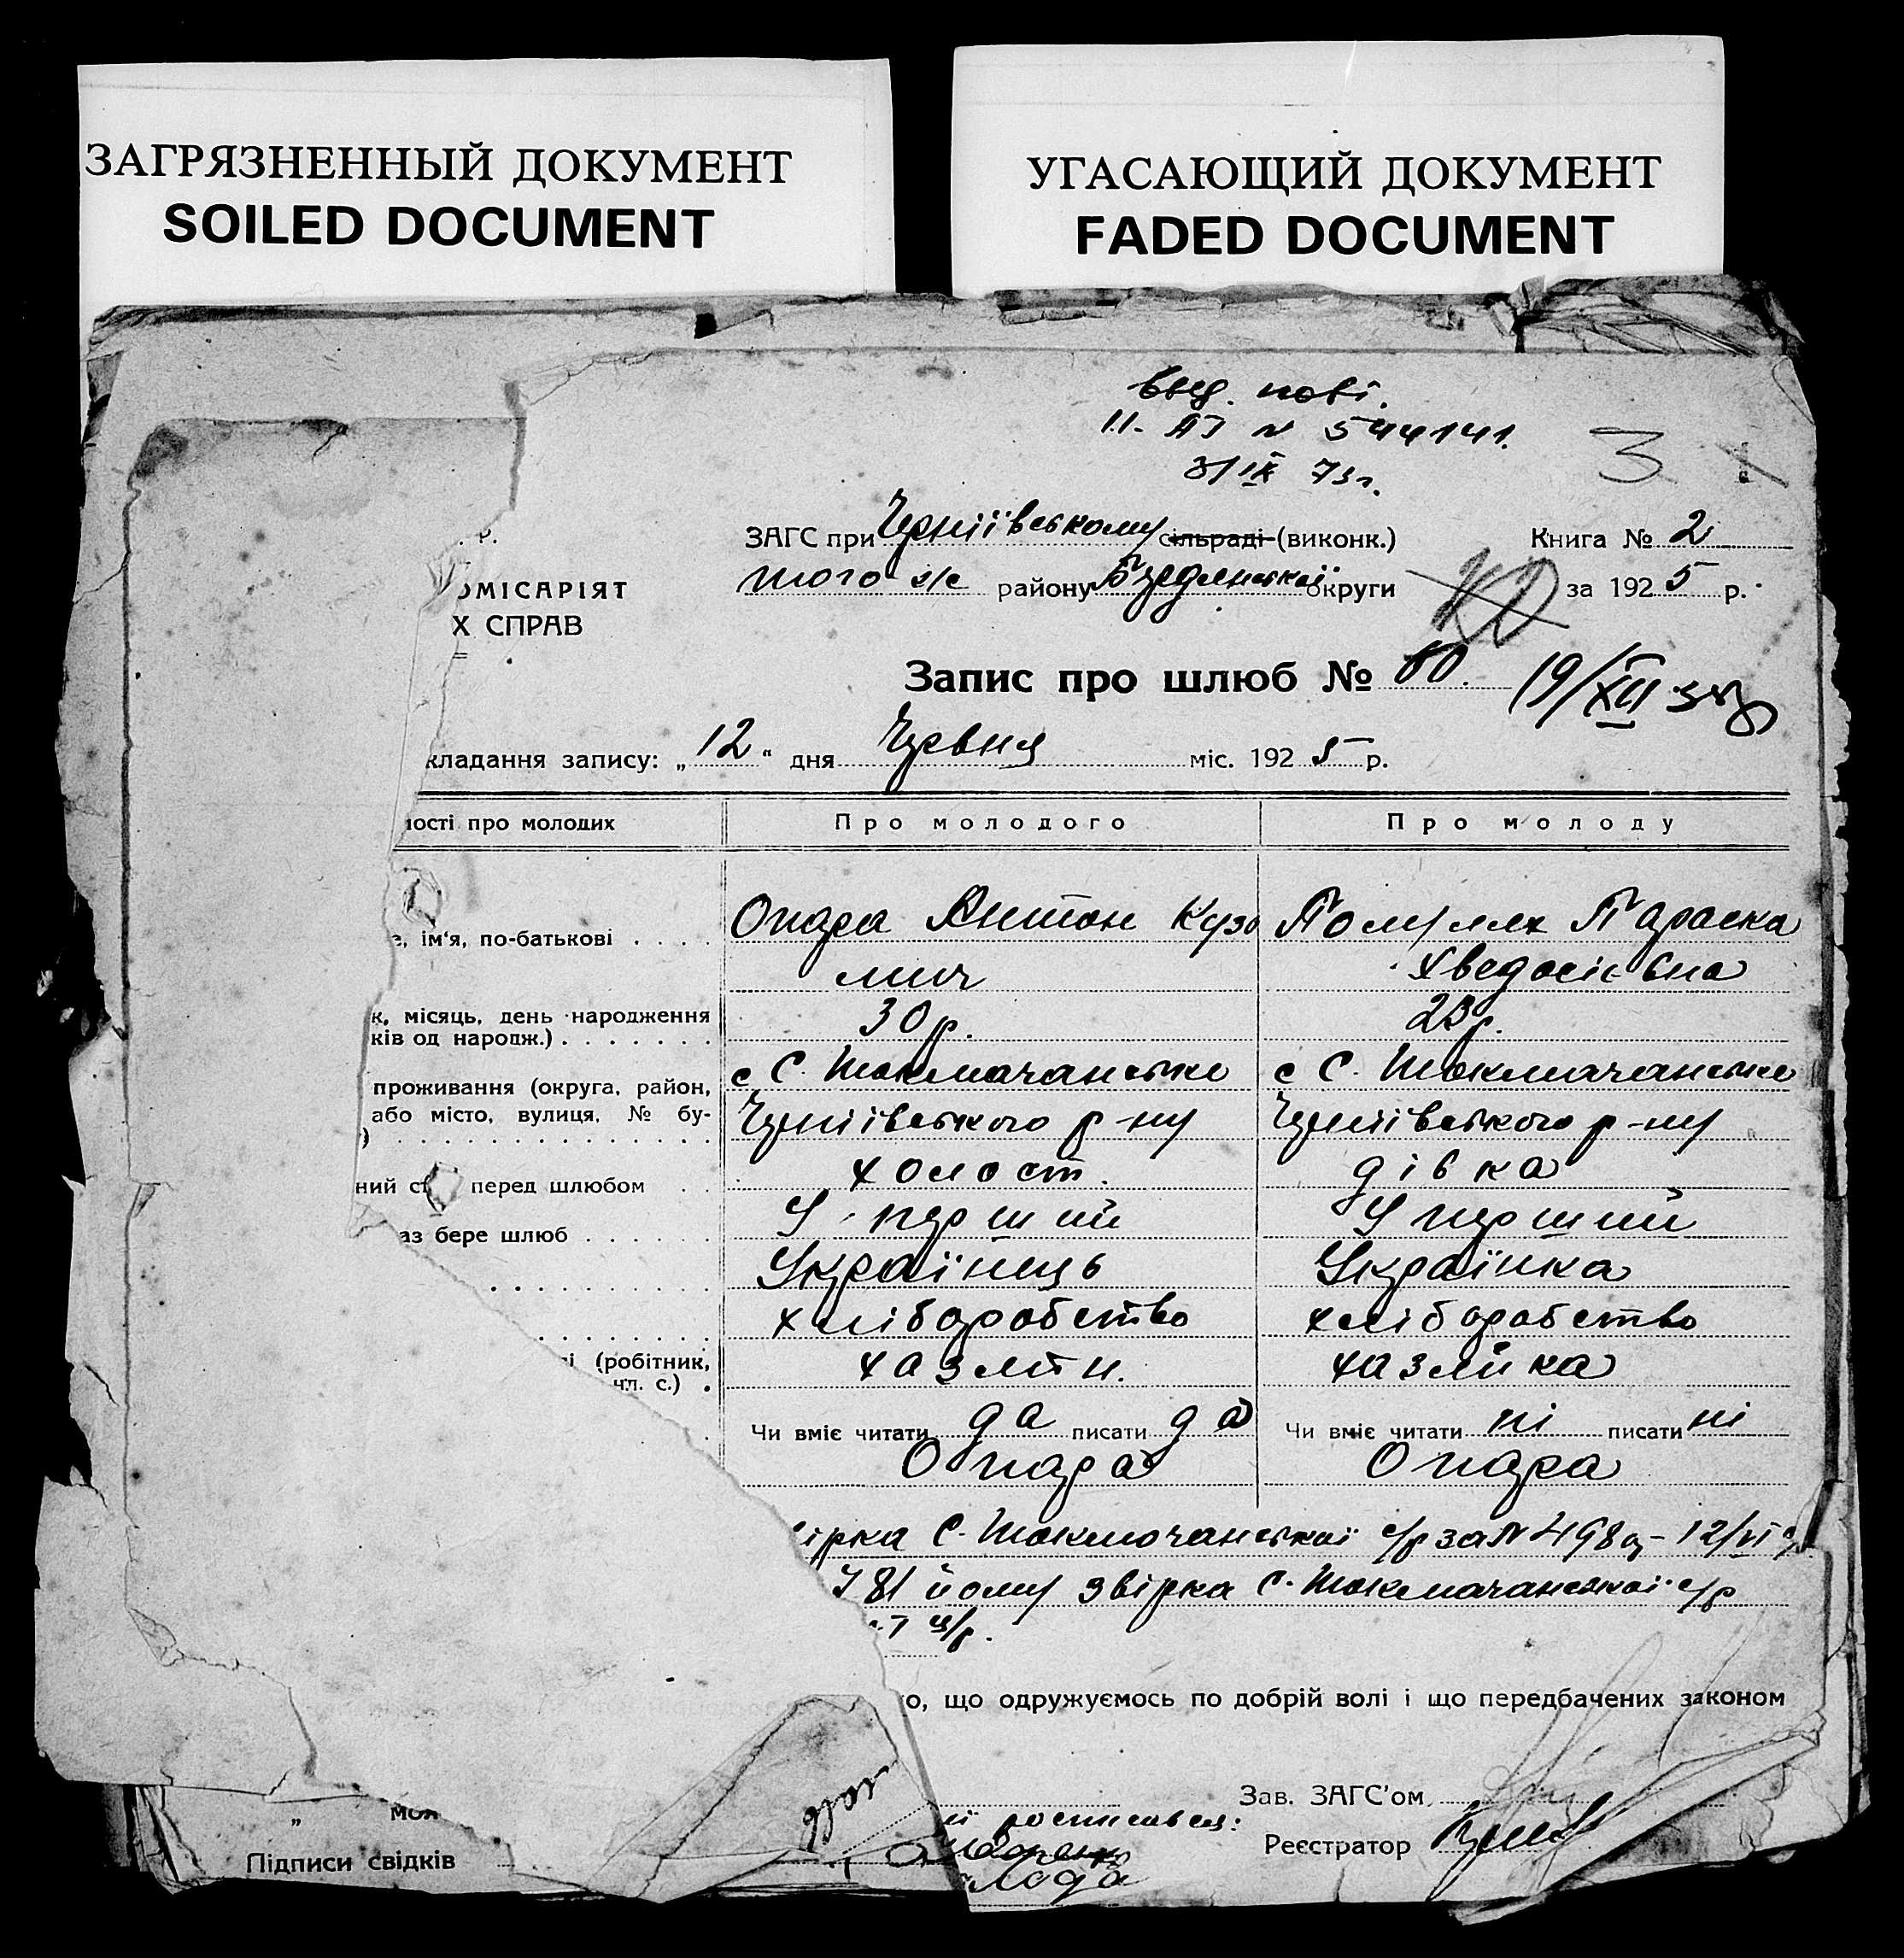 ЗАГРЯЗНЕННЫЙ ДОКУМЕНТ
SOILED DOCUMENT
УГАСАЮЩИЙ ДОКУМЕНТ
FADED DOCUMENT
нові.
N 544141.
3/IX 73г.
3
. Р.
ОМІСАРІЯТ
Х СПРАВ
ЗАГС при сільраді (виконк.)
Книга № 2
того району округи
за 1925 р.
Запис про шлюб № 60.
19/XII
кладання запису: „12“ дня Червня міс. 1925 р.
ності про молодих
Про молодого
Про молоду
е, ім'я, по-батькові . . . .
Опара Антон Кузь
мич
Параска
Хведосіївна
к, місяць, день народження
ків од народж.) . . . . . . .
30 р.
23 р.
проживання (округа, район,
або місто, вулиця, № бу-
) . . . . . . . . . . . . . . . .
с С. Токмачанське
р-ну
с С. Токмачанське
р-ну
ний ст перед шлюбом . .
холост.
дівка
аз бере шлюб . . . . . .
У перший
У перший
Українець
Українка
хліборобство
хліборобство
і (робітник,
чл. с.) .
хазяїн.
хазяйка
Чи вміє читати да писати да
Чи вміє читати ні писати ні
Опара
Опара
вірка С. Токмачанської с/р за N 498 12/VI
781 йому звірка С. Токмачанської с/р
о, що одружуємось по добрій волі і що передбачених законом
Зав. ЗАГС'ом
„ мол
росписався:
Реєстратор
Підписи свідків